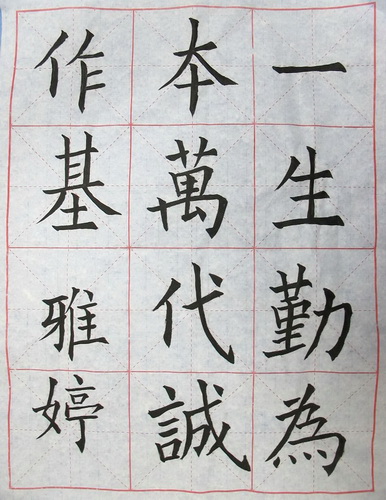 一生勤為
本萬代誠
作基雅婷